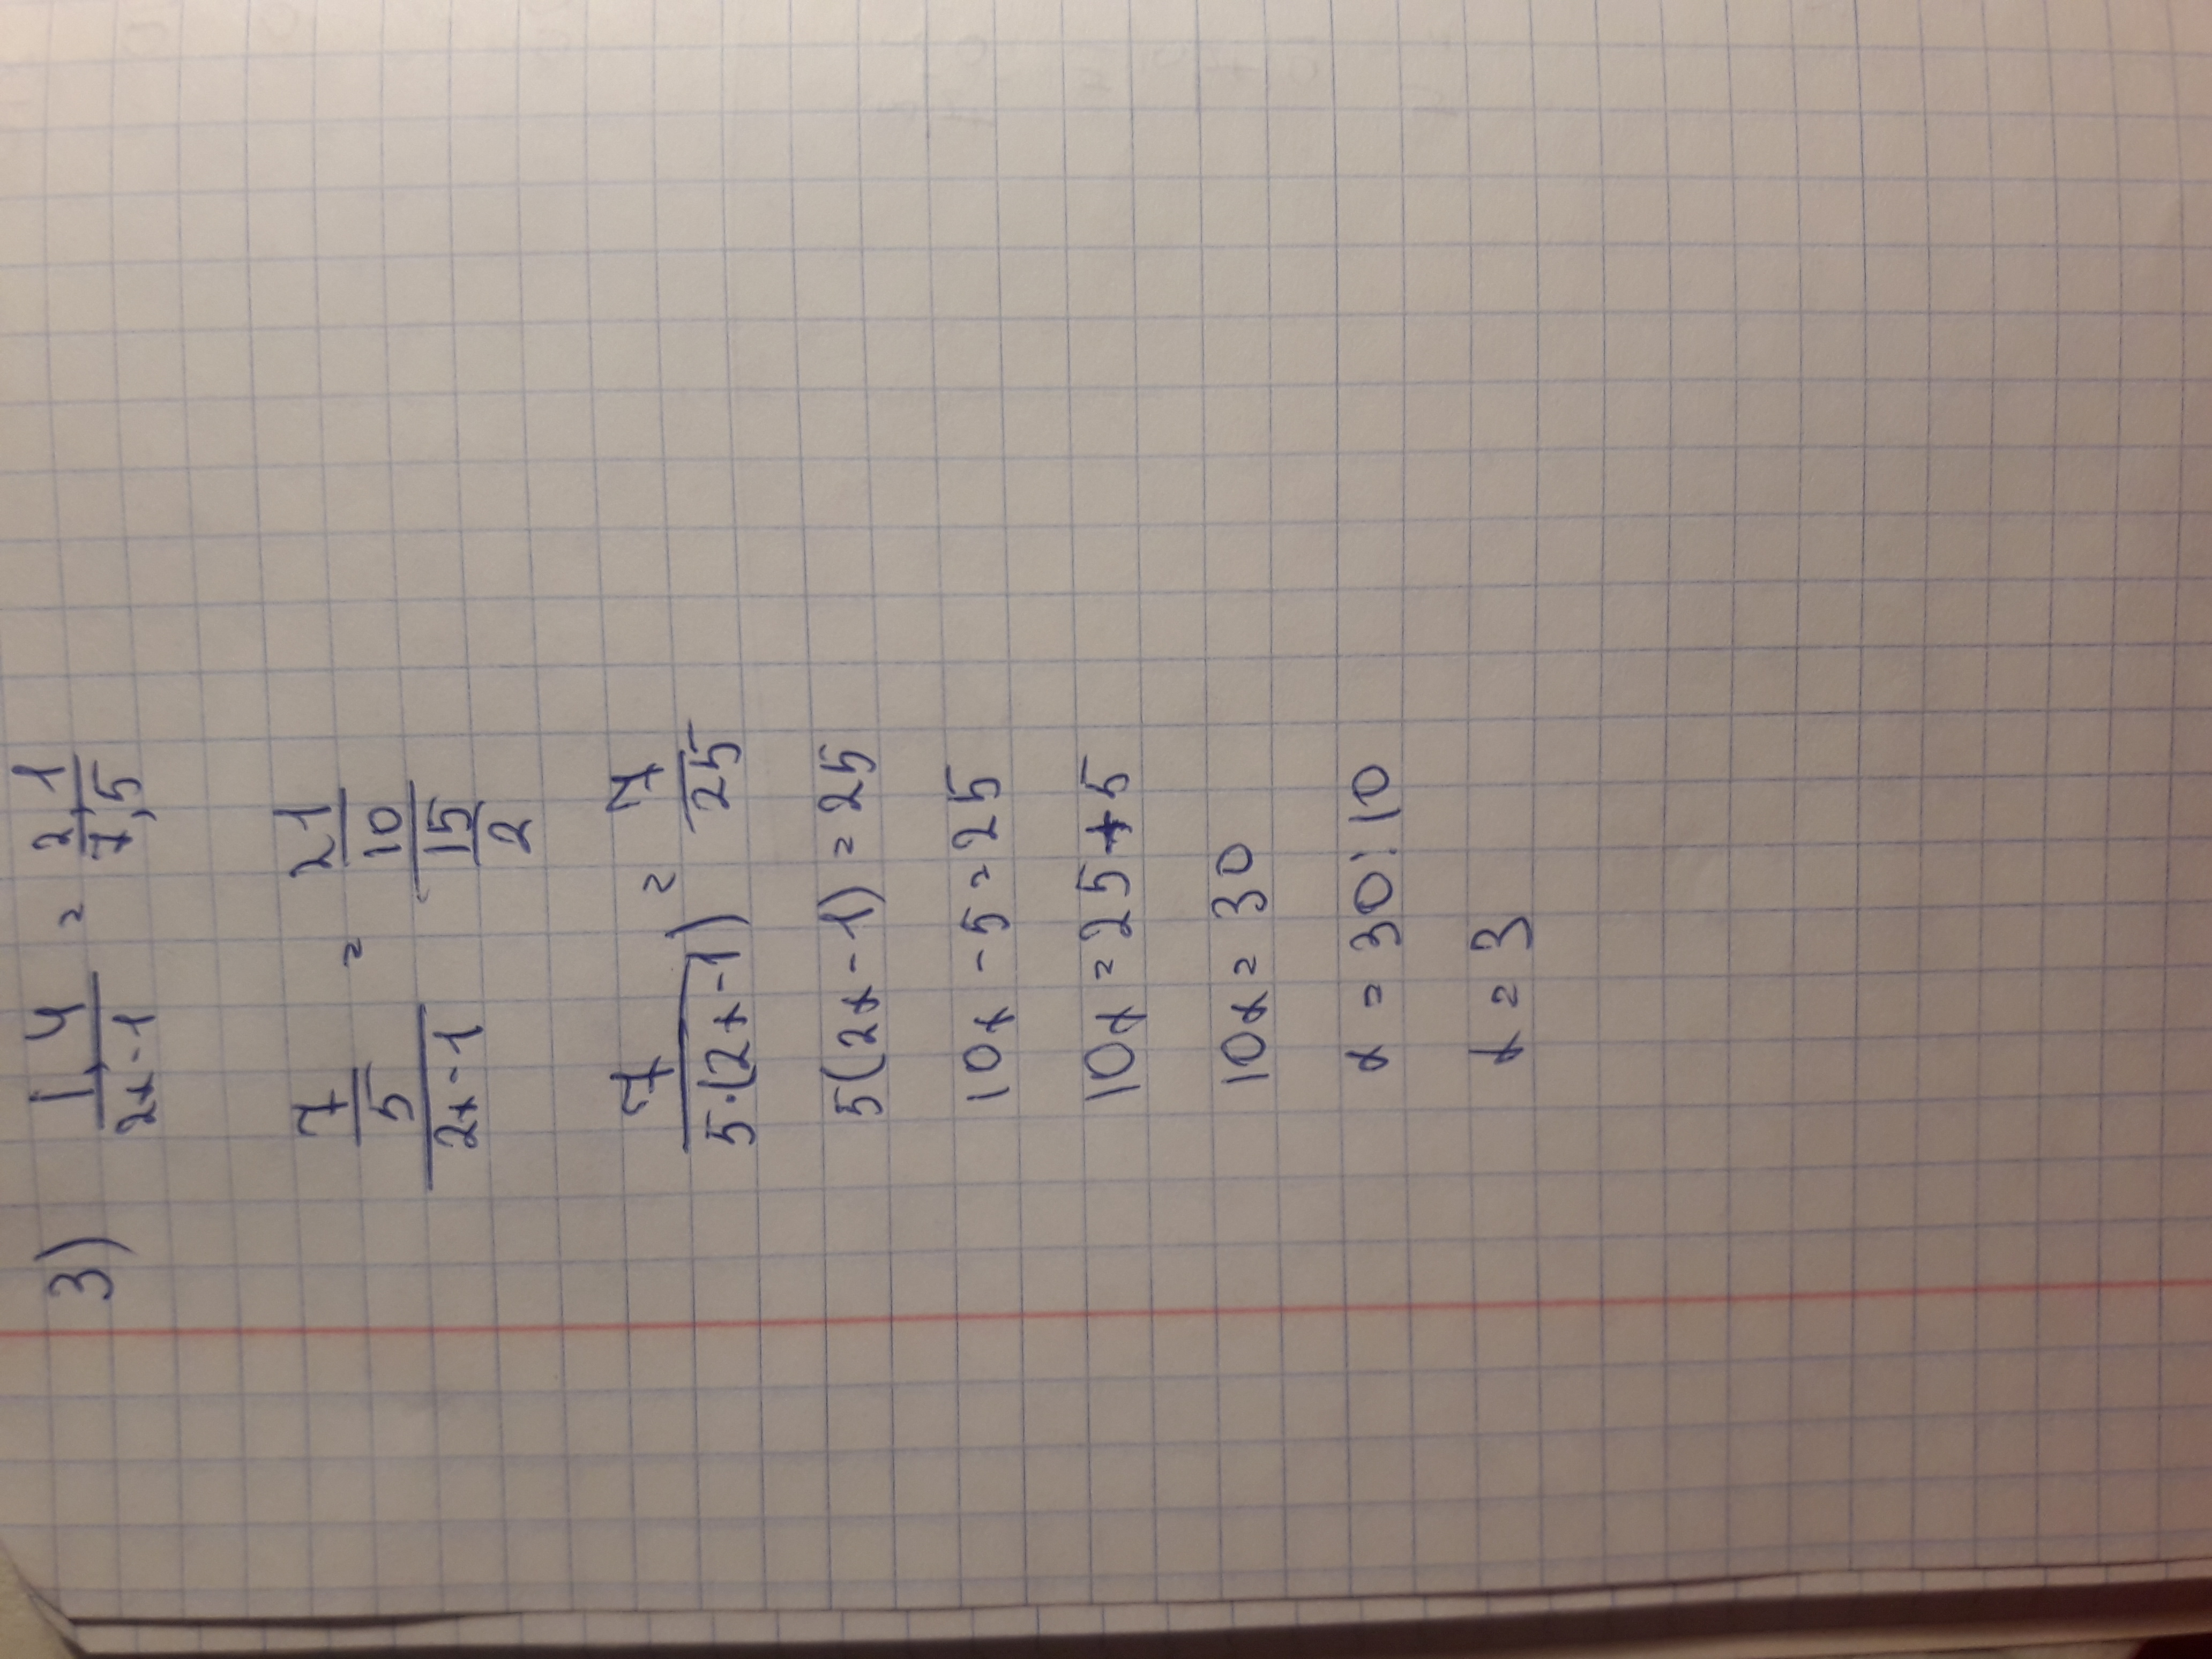 3) 1,4/2x-1 = 2,1/7,5
7/5/2x-1 = 21/10/15/2
7/5·(2x-1) = 7/25
5(2x-1) = 25
10x - 5 = 25
10x = 25+5
10x = 30
x = 30:10
x = 3